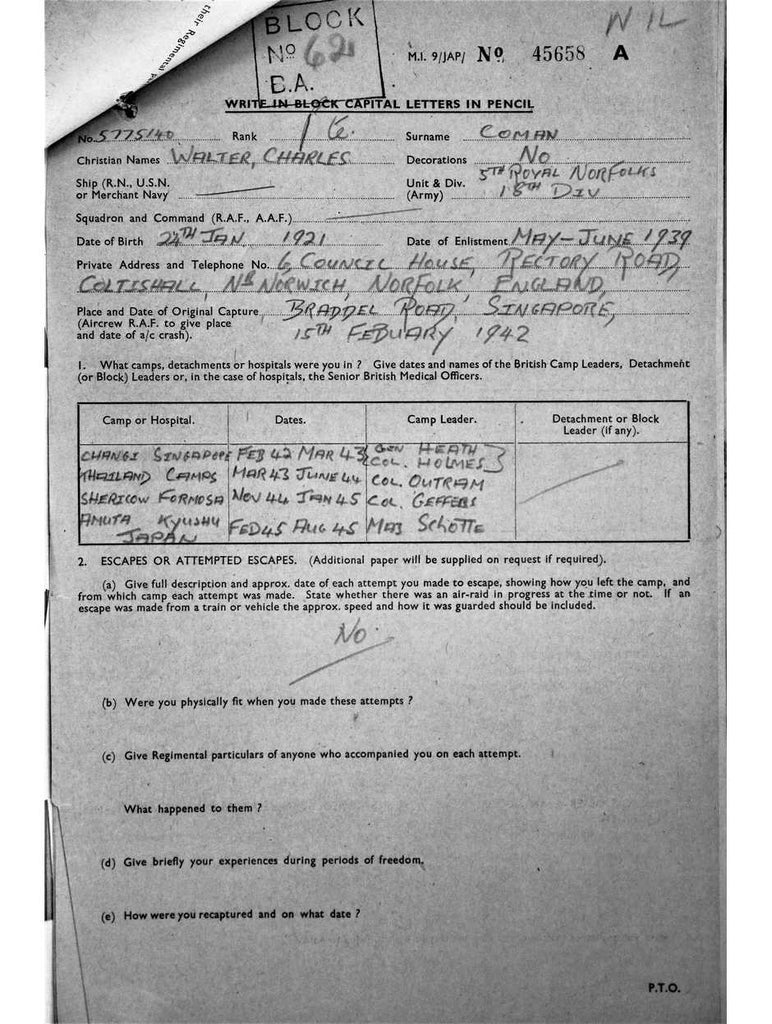 their Regimental
BLOCK
No 62
B.A.
NIL
M.I. 9/JAP/ No. 45658 A
WRITE IN BLOCK CAPITAL LETTERS IN PENCIL
No. 5775140 Rank Pte. Surname COMAN
Christian Names WALTER, CHARLES Decorations No
Ship (R.N., U.S.N. or Merchant Navy Unit & Div. (Army) 5TH ROYAL NORFOLKS 18TH DIV
Squadron and Command (R.A.F., A.A.F.)
Date of Birth 24TH JAN 1921 Date of Enlistment MAY-JUNE 1939
Private Address and Telephone No. 6, COUNCIL HOUSE, RECTORY ROAD,
COLTISHALL, NR NORWICH, NORFOLK ENGLAND,
Place and Date of Original Capture BRADDEL ROAD, SINGAPORE,
(Aircrew R.A.F. to give place
and date of a/c crash). 15TH FEBUARY 1942
1. What camps, detachments or hospitals were you in ? Give dates and names of the British Camp Leaders, Detachment
(or Block) Leaders or, in the case of hospitals, the Senior British Medical Officers.
Camp or Hospital. Dates. Camp Leader. Detachment or Block Leader (if any).
CHANGI SINGAPOPE FEB 42 MAR 43 GEN HEATH COL. HOLMES
THAILAND CAMPS MAR 43 JUNE 44 COL. OUTRAM
SHERICOW FORMOSA NOV 44 JAN 45 COL. GEFFERS
AMUTA KYUSHU JAPAN FED 45 AUG 45 MAJ SCHOTTE
2. ESCAPES OR ATTEMPTED ESCAPES. (Additional paper will be supplied on request if required).
(a) Give full description and approx. date of each attempt you made to escape, showing how you left the camp, and
from which camp each attempt was made. State whether there was an air-raid in progress at the time or not. If an
escape was made from a train or vehicle the approx. speed and how it was guarded should be included.
No
(b) Were you physically fit when you made these attempts ?
(c) Give Regimental particulars of anyone who accompanied you on each attempt.
What happened to them ?
(d) Give briefly your experiences during periods of freedom.
(e) How were you recaptured and on what date ?
P.T.O.